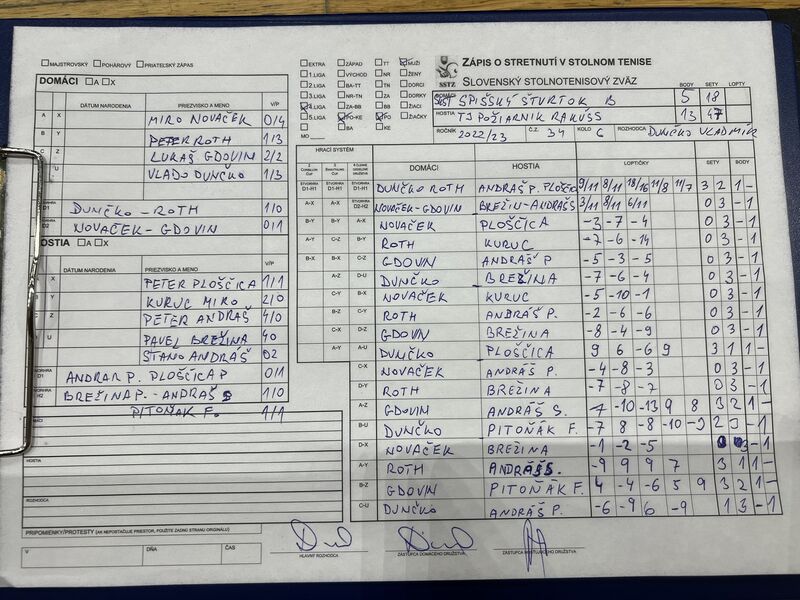 MAJSTROVSKÝ POHÁROVÝ PRIATEĽSKÝ ZÁPAS
DOMÁCI A X
DÁTUM NARODENIA PRIEZVISKO A MENO V/P
A X MIRO NOVAČEK 0/4
B Y PETER ROTH 1/3
LUKAŠ GDOVIN 2/2
U VLADO DUNČKO 1/3
D1 DUNČKO - ROTH 1/0
D2 NOVAČEK - GDOVIN 0/1
HOSTIA A X
DÁTUM NARODENIA PRIEZVISKO A MENO V/P
X PETER PLOŠČICA 1/1
KURUC MIRO 2/0
Z PETER ANDRÁŠ 4/0
U PAVEL BREŽINA 40
STANO ANDRÁŠ 02
ANDRAR P. PLOŠČICA P 0/1
H2 BREŽINA P. - ANDRÁŠ S 1/0
PITOŇAK F. 1/1
DOMÁCI
HOSTIA
ROZHODCA
PRIPOMIENKY/PROTESTY (AK NEPOSTAČUJE PRIESTOR, POUŽITE ZADNÚ STRANU ORIGINÁLU)
V DŇA ČAS
EXTRA ZÁPAD TT MUŽI
1.LIGA VÝCHOD NR ŽENY
2.LIGA BA-TT TN DORCI
3.LIGA NR-TN ZA DORKY
4.LIGA ZA-BB BB ŽIACI
5.LIGA PO-KE PO ŽIAČKY
BA KE
MO
SSTZ
ZÁPIS O STRETNUTÍ V STOLNOM TENISE
SLOVENSKÝ STOLNOTENISOVÝ ZVÄZ
BODY SETY LOPTY
DOMÁCI SPIŠSKÝ ŠTVRTOK B 5 18
HOSTIA TJ POŽIARNIK RAKÚSS 13 47
ROČNÍK 2022/23 Č.Z. 34 KOLO 6 ROZHODCA DUNČKO VLADMÍR
HRACÍ SYSTÉM
DOMÁCI HOSTIA LOPTIČKY SETY BODY
ŠTVORHRA D1-H1 ŠTVORHRA D1-H1 ŠTVORHRA D1-H1 DUNČKO ROTH ANDRÁŠ P. 9/11 8/11 18/16 11/8 11/7 3 2 1 -
A-X A-X ŠTVORHRA D2-H2 NOVAČEK-GDOVIN BREŽIN-ANDRÁŠS 3/11 8/11 6/11 0 3 - 1
B-Y B-Y A-X NOVAČEK PLOŠČICA -3 -7 -4 0 3 - 1
A-Y C-Z B-Y ROTH KURUC -7 -6 -14 0 3 - 1
B-X B-X C-Z GDOVIN ANDRÁŠ P -5 -3 -5 0 3 - 1
A-Z D-U DUNČKO BREŽINA -7 -6 -4 0 3 - 1
C-Y A-Y NOVAČEK KURUC -5 -10 -1 0 3 - 1
B-Z ROTH ANDRÁŠ P. -2 -6 -6 0 3 - 1
C-X D-Z GDOVIN BREŽINA -8 -4 -9 0 3 - 1
A-Y A-U DUNČKO PLOŠČICA 9 6 -6 9 3 1 1 -
C-X NOVAČEK ANDRÁŠ P. -4 -8 -3 0 3 - 1
D-Y ROTH BREŽINA -7 -8 -7 0 3 - 1
A-Z GDOVIN ANDRÁŠ S. -10 -13 9 8 3 2 1 -
B-U DUNČKO PITOŇÁK F. -7 8 8 -10 -9 2 3 - 1
D-X NOVAČEK BREŽINA -1 -2 -5 0 3 - 1
A-Y ROTH ANDRÁŠS. -9 9 9 7 3 1 1 -
B-Z GDOVIN PITOŇAK F. 4 -4 -6 5 9 3 2 1 -
C-U DUNČKO ANDRÁŠ P. -6 -9 6 -9 1 3 - 1
HLAVNÝ ROZHODCA ZÁSTUPCA DOMÁCEHO DRUŽSTVA ZÁSTUPCA HOSŤUJÚCEHO DRUŽSTVA